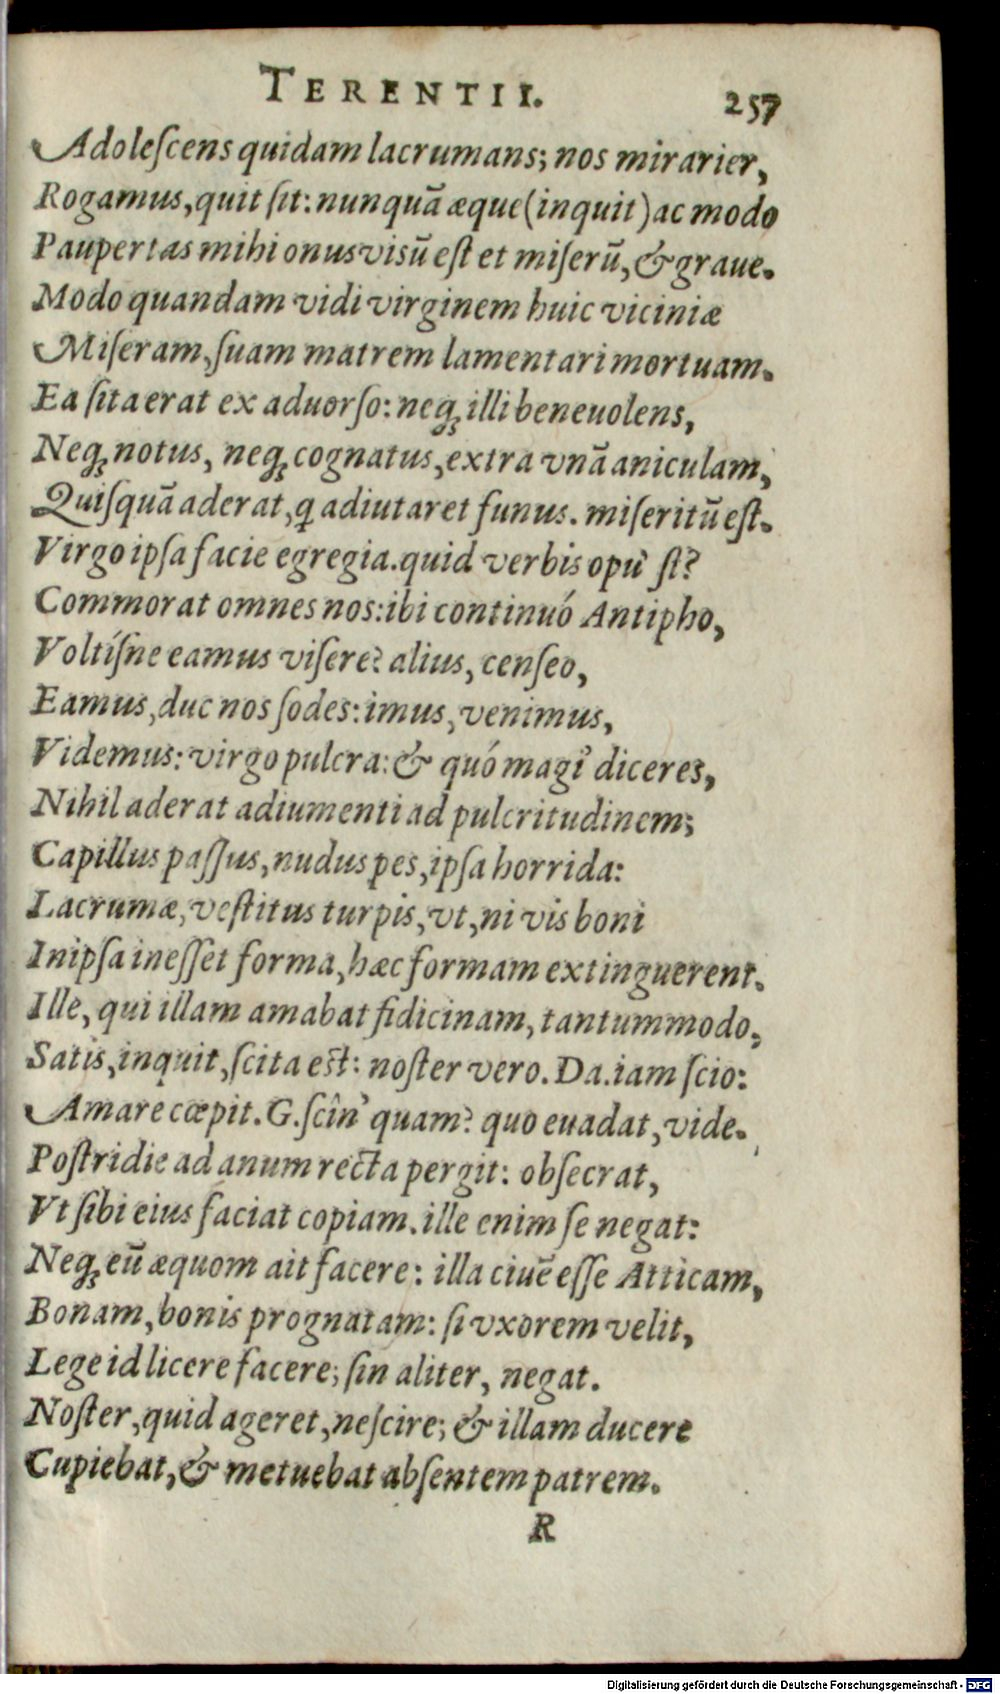 TERENTII. 257
Adoleſcens quidam lacrumans; nos mirarier,
Rogamus, quit ſit: nunquā æque (inquit) ac modo
Paupertas mihi onus viſū eſt et miſerū, & graue.
Modo quandam vidi virginem huic viciniæ
Miſeram, ſuam matrem lamentari mortuam.
Ea ſita erat ex aduorſo: neq; illi beneuolens,
Neq; notus, neq; cognatus, extra vnā aniculam,
Quiſquā aderat, ꝗ adiutaret funus. miſeritū eſt.
Virgo ipſa facie egregia. quid verbis opu' ſt?
Commorat omnes nos: ibi continuó Antipho,
Voltíſne eamus viſere? alius, cenſeo,
Eamus, duc nos ſodes: imus, venimus,
Videmus: virgo pulcra: & quó magi' diceres,
Nihil aderat adiumenti ad pulcritudinem;
Capillus paſſus, nudus pes, ipſa horrida:
Lacrumæ, veſtitus turpis, vt, ni vis boni
In ipſa ineſſet forma, hæc formam extinguerent.
Ille, qui illam amabat fidicinam, tantummodo,
Satis, inquit, ſcita eſt: noſter vero. Da. iam ſcio:
Amare cœpit. G. ſcîn' quam? quo euadat, vide.
Poſtridie ad anum recta pergit: obſecrat,
Vt ſibi eius faciat copiam. ille enim ſe negat:
Neq; eū æquom ait facere: illa ciuē eſſe Atticam,
Bonam, bonis prognatam: ſi vxorem velit,
Lege id licere facere; ſin aliter, negat.
Noſter, quid ageret, neſcire; & illam ducere
Cupiebat, & metuebat abſentem patrem.
R
Digitalisierung gefördert durch die Deutsche Forschungsgemeinschaft - DFG